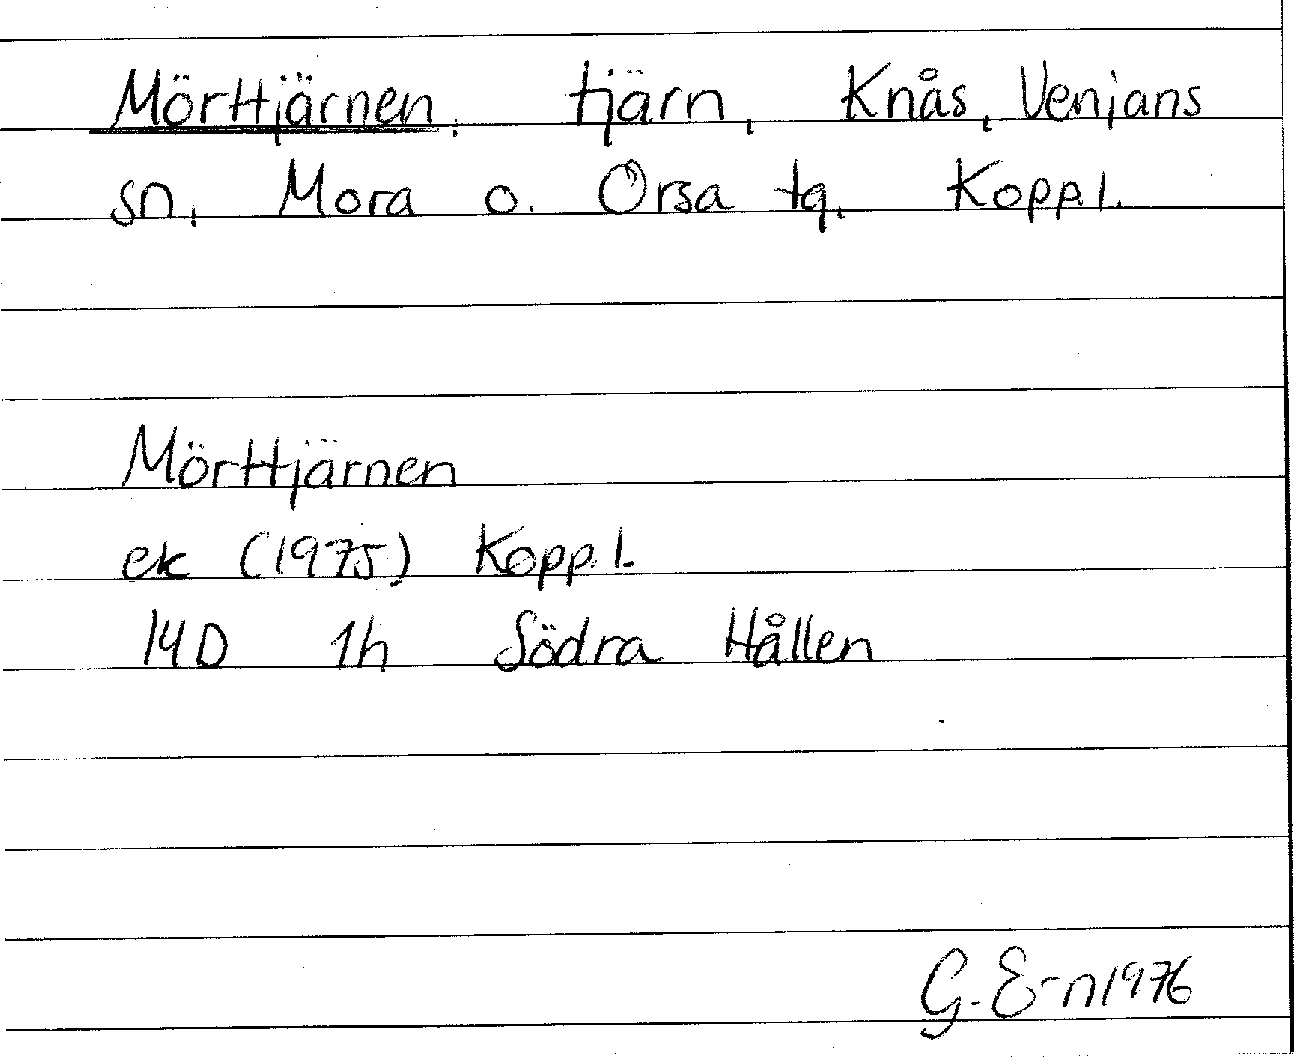 Mörttjärnen, tjärn, Knås, Venjans
sn, Mora o. Orsa tg, Koppl.
Mörttjärnen
ek (1975) Koppl.
14D 1h Södra Hållen
G. E-n 1976